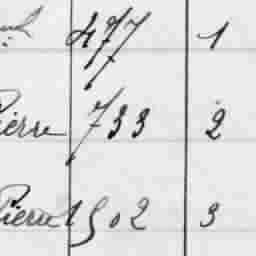 477 1
Pierre 733 2
Pierre 1502 3